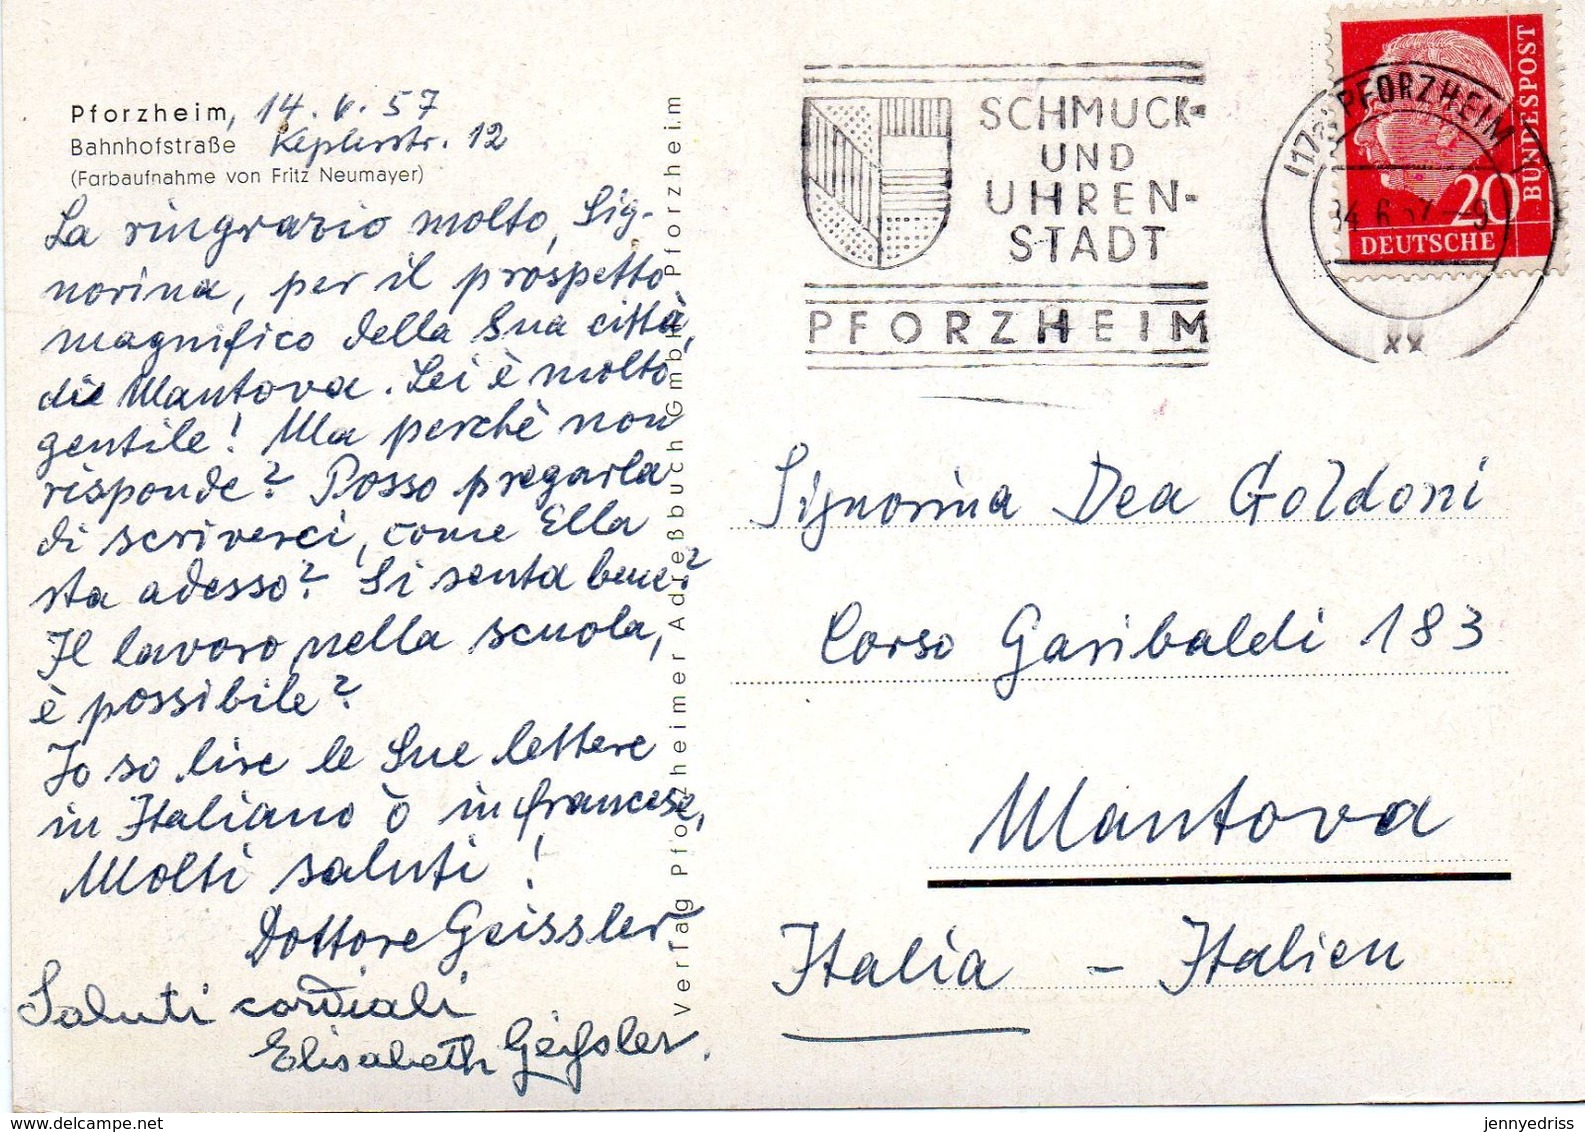 Pforzheim, 14.6.57
Bahnhofstraße Keplerstr. 12
(Farbaufnahme von Fritz Neumayer)
La ringrazio molto, Sig-
norina, per il prospetto
magnifico della Sua città,
di Mantova. Lei è molto
gentile! Ma perchè non
risponde? Posso pregarla
di scriverci, come Ella
sta adesso? Si senta bene?
Il lavoro nella scuola,
è possibile?
Io so lire le Sue lettere
in Italiano ò in francese,
Molti saluti!
Dottore Geissler.
Saluti cordiali
Elisabeth Geißler.
Verlag Pforzheimer Adreßbuch GmbH Pforzheim
SCHMUCK-
UND
UHREN-
STADT
PFORZHEIM
PFORZHEIM
6.57-9
xx
20
DEUTSCHE
BUNDESPOST
Signorina Dea Goldoni
Corso Garibaldi 183
Mantova
Italia - Italien
www.delcampe.net
jennyedriss